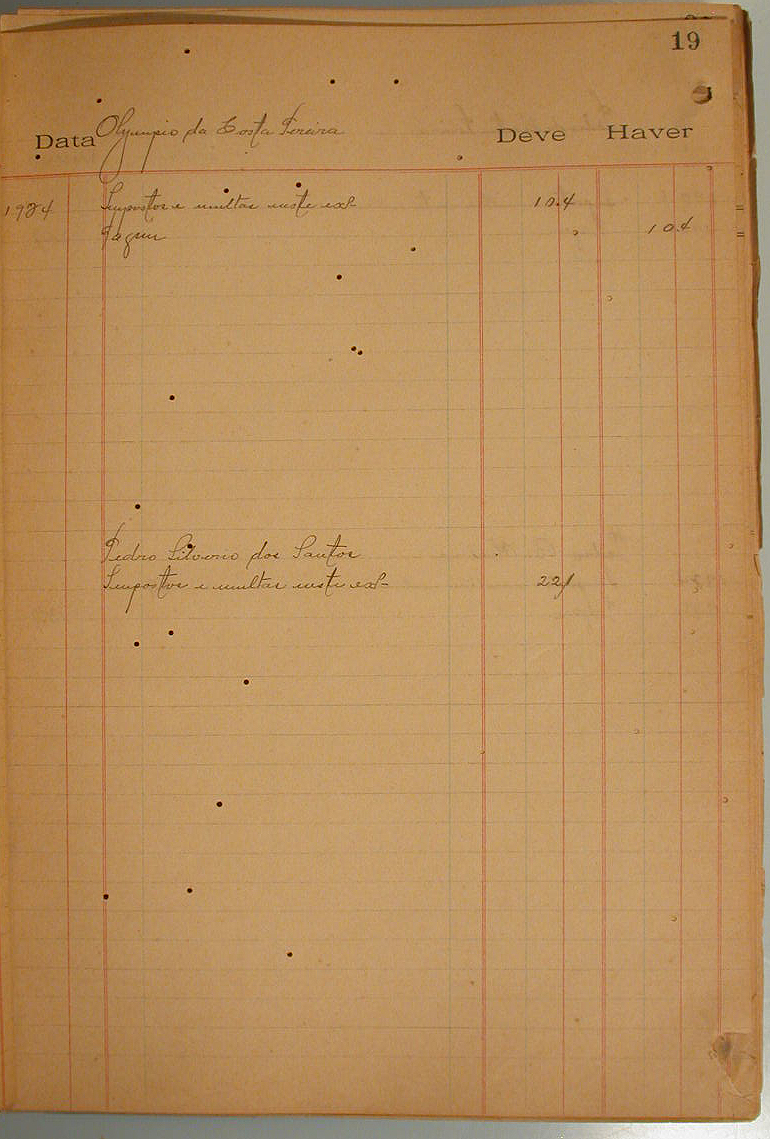 19
Data Olympio da Costa Pereira Deve Haver
1934 Impostos e multas neste exº 10.4
Pagou 10.4
Pedro Silverio dos Santos
Impostos e multas neste exº 22